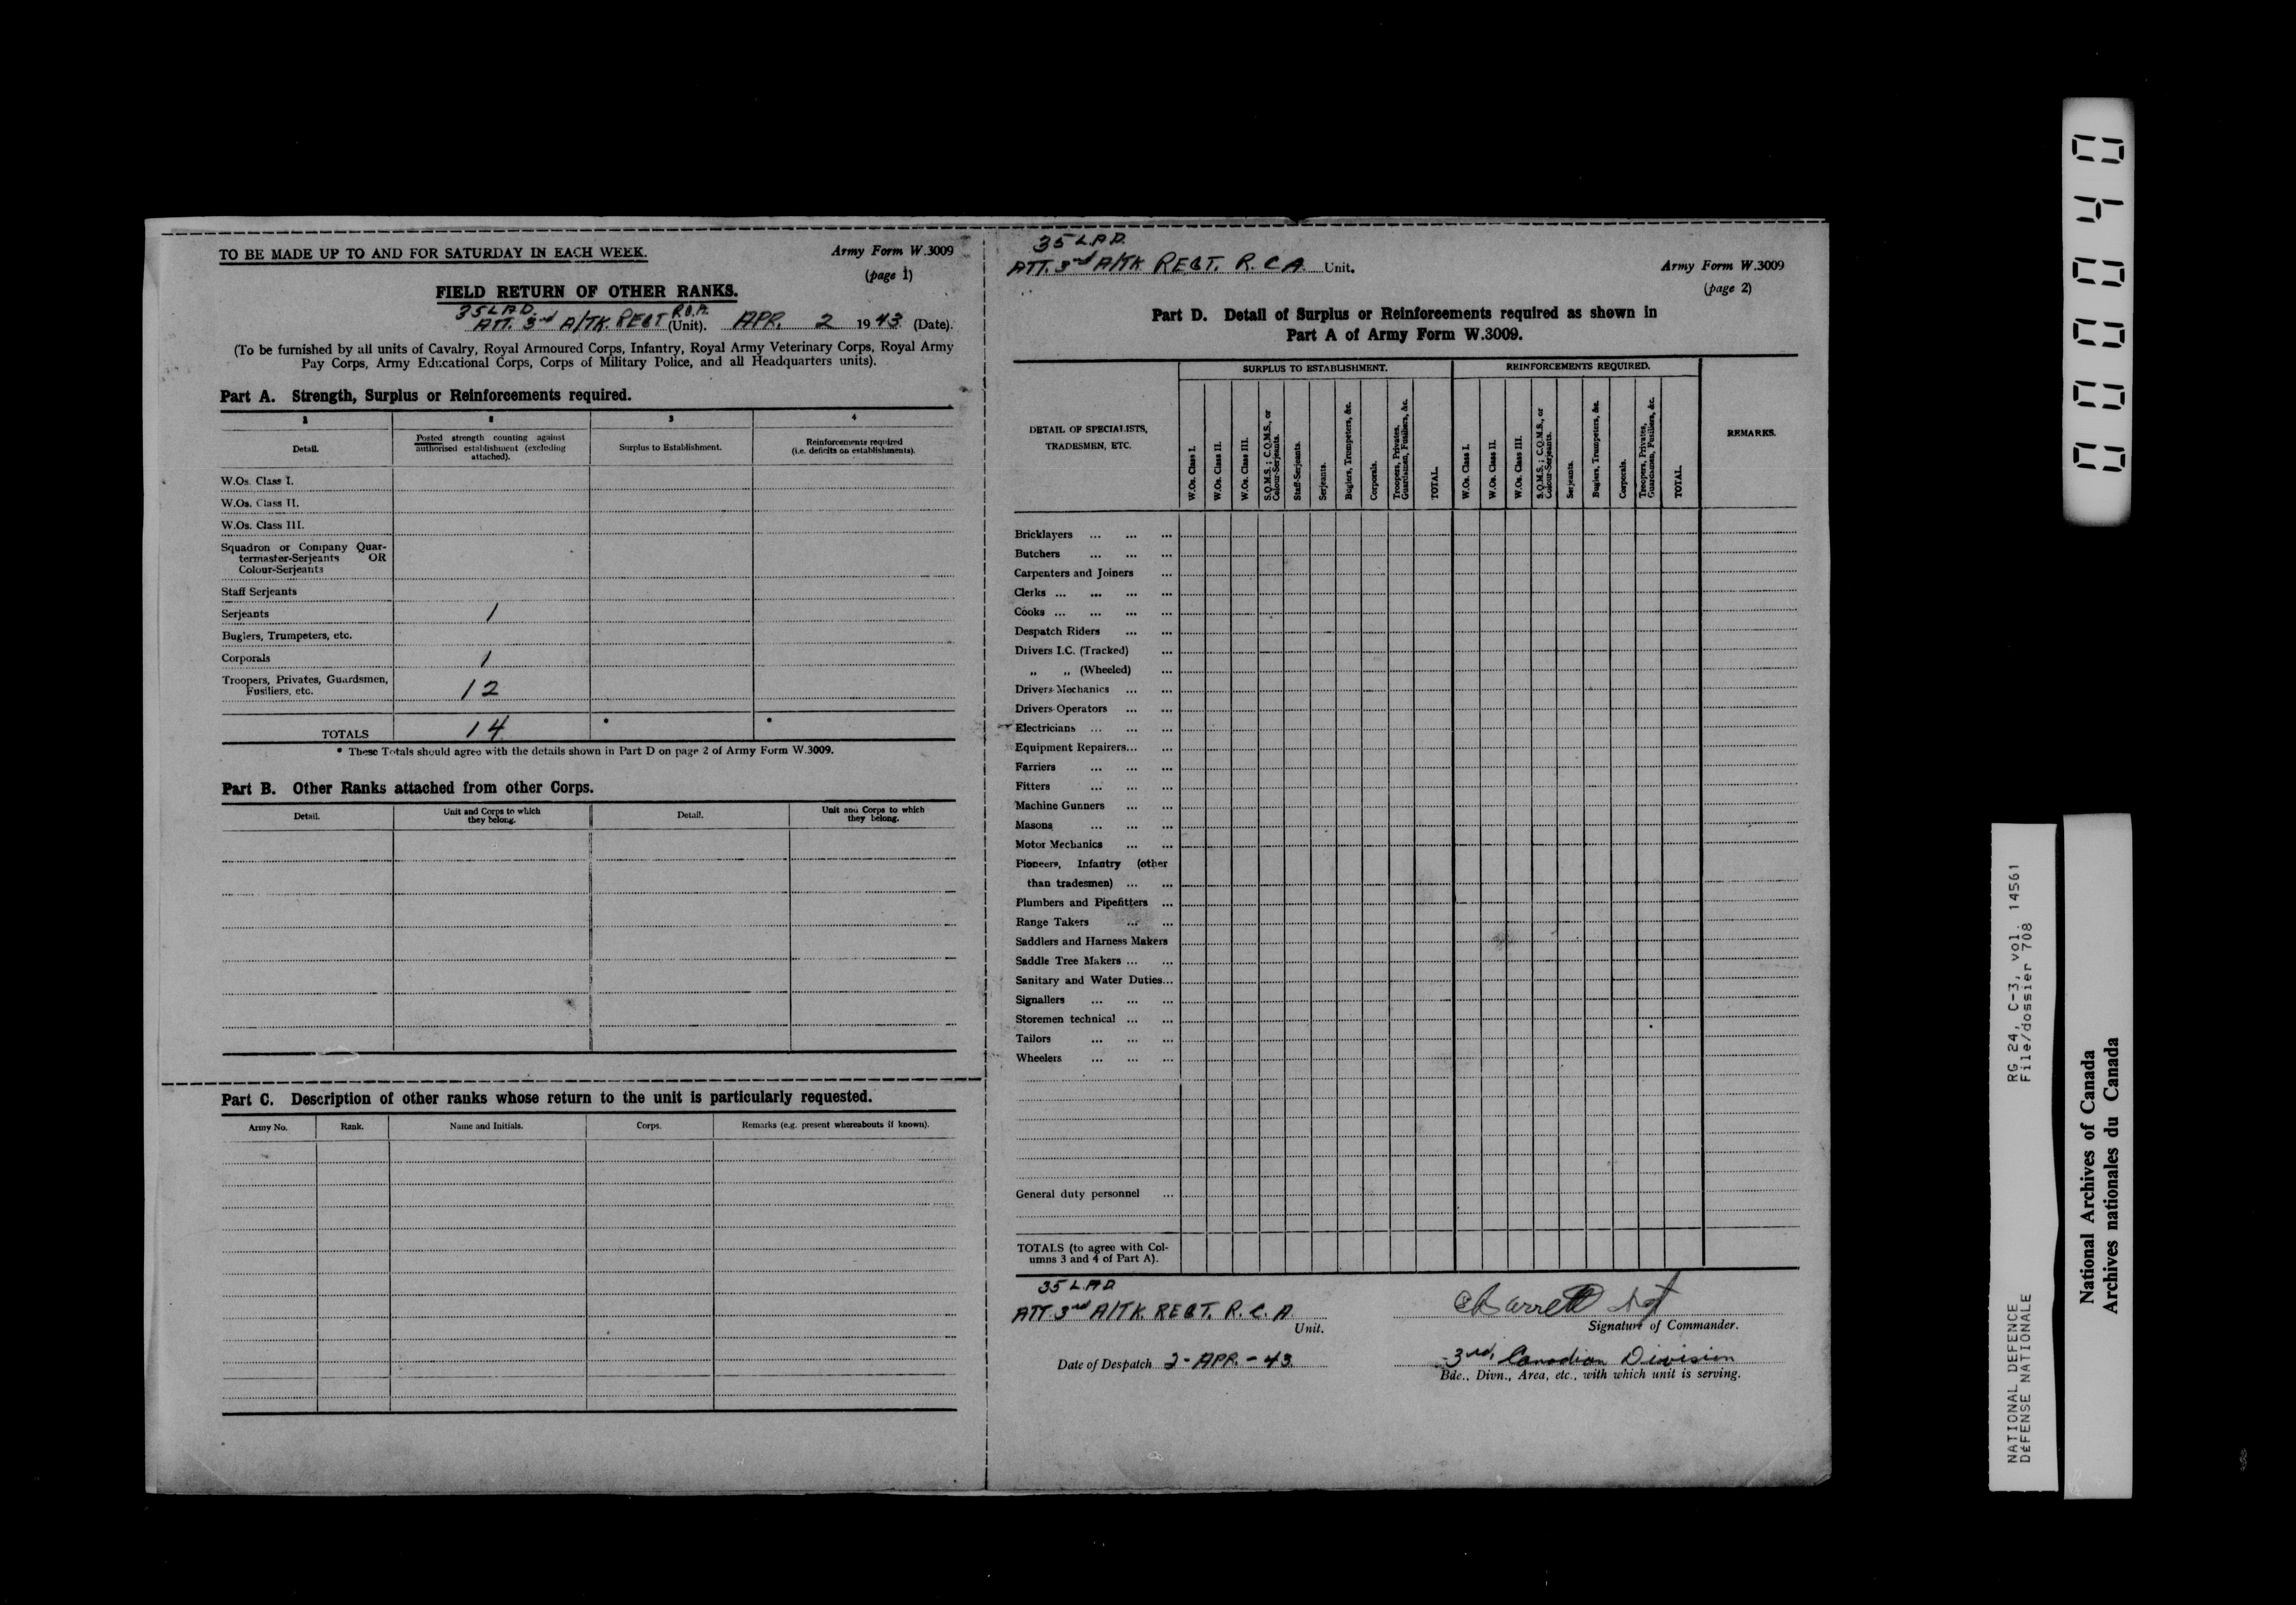 TO BE MADE UP TO AND FOR SATURDAY IN EACH WEEK.
Army Form W.3009
(page 1)
FIELD RETURN OF OTHER RANKS.
35 L.A.D.
ATT. 3rd A/TK. REGT R.C.A. (Unit). APR. 2 1943 (Date).
(To be furnished by all units of Cavalry, Royal Armoured Corps, Infantry, Royal Army Veterinary Corps, Royal Army
Pay Corps, Army Educational Corps, Corps of Military Police, and all Headquarters units).
Part A. Strength, Surplus or Reinforcements required.
1 2 3 4
Detail.
Posted strength counting against
authorised establishment (excluding
attached).
Surplus to Establishment.
Reinforcements required
(i.e. deficits on establishments).
W.Os. Class I.
W.Os. Class II.
W.Os. Class III.
Squadron or Company Quar-
termaster-Serjeants OR
Colour-Serjeants
Staff Serjeants
Serjeants 1
Buglers, Trumpeters, etc.
Corporals 1
Troopers, Privates, Guardsmen,
Fusiliers, etc. 12
TOTALS 14 * *
* These Totals should agree with the details shown in Part D on page 2 of Army Form W.3009.
Part B. Other Ranks attached from other Corps.
Detail.
Unit and Corps to which
they belong.
Detail.
Unit and Corps to which
they belong.
Part C. Description of other ranks whose return to the unit is particularly requested.
Army No. Rank. Name and Initials. Corps. Remarks (e.g. present whereabouts if known).
35 L.A.D.
ATT. 3rd A/TK REGT. R.C.A. Unit.
Army Form W.3009
(page 2)
Part D. Detail of Surplus or Reinforcements required as shown in
Part A of Army Form W.3009.
DETAIL OF SPECIALISTS,
TRADESMEN, ETC.
SURPLUS TO ESTABLISHMENT.
W.Os. Class I.
W.Os. Class II.
W.Os. Class III.
S.Q.M.S.; C.Q.M.S., or
Colour-Serjeants.
Staff-Serjeants.
Serjeants.
Buglers, Trumpeters, &c.
Corporals.
Troopers, Privates,
Guardsmen, Fusiliers, &c.
TOTAL.
REINFORCEMENTS REQUIRED.
W.Os. Class I.
W.Os. Class II.
W.Os. Class III.
S.Q.M.S.; C.Q.M.S., or
Colour-Serjeants.
Serjeants.
Buglers, Trumpeters, &c.
Corporals.
Troopers, Privates,
Guardsmen, Fusiliers, &c.
TOTAL.
REMARKS.
Bricklayers ... ... ...
Butchers ... ... ...
Carpenters and Joiners ...
Clerks ... ... ... ...
Cooks ... ... ... ...
Despatch Riders ... ...
Drivers I.C. (Tracked) ...
„ „ (Wheeled) ...
Drivers Mechanics ... ...
Drivers Operators ... ...
Electricians ... ... ...
Equipment Repairers... ...
Farriers ... ... ...
Fitters ... ... ...
Machine Gunners ... ...
Masons ... ... ...
Motor Mechanics ... ...
Pioneers, Infantry (other
than tradesmen) ... ...
Plumbers and Pipefitters ...
Range Takers ... ...
Saddlers and Harness Makers
Saddle Tree Makers ... ...
Sanitary and Water Duties...
Signallers ... ... ...
Storemen technical ... ...
Tailors ... ... ...
Wheelers ... ... ...
General duty personnel ...
TOTALS (to agree with Col-
umns 3 and 4 of Part A).
35 L.A.D
ATT. 3rd A/TK. REGT. R.C.A.
Unit.
Signature of Commander.
Date of Despatch 2-APR.-43.
3rd. Canadian Division
Bde., Divn., Area, etc., with which unit is serving.
000040
RG 24, C-3, vol. 14561
File/dossier 708
NATIONAL DEFENCE
DÉFENSE NATIONALE
National Archives of Canada
Archives nationales du Canada